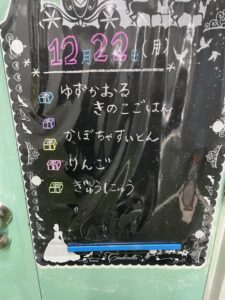 12月22日(月)
ゆずかおる
きのこごはん
かぼちゃすいとん
りんご
ぎゅうにゅう
Cinderella